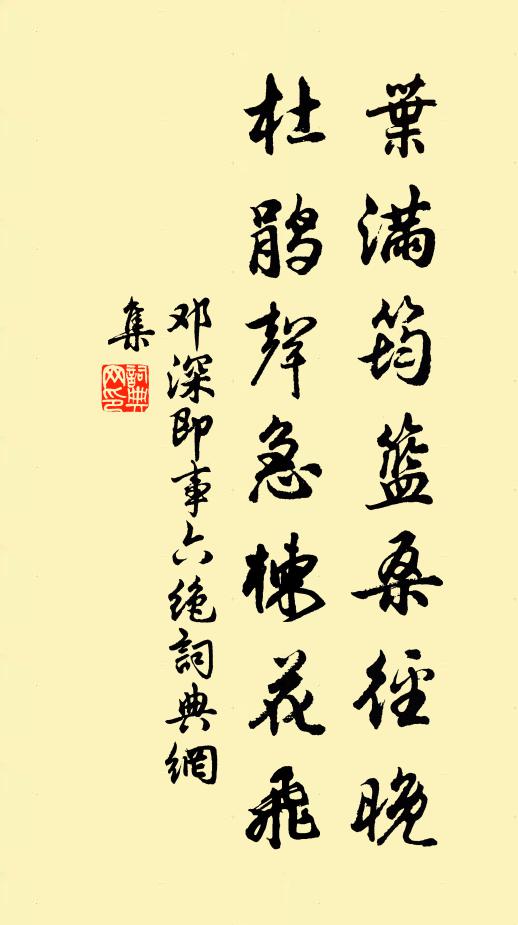 葉滿筠籃桑徑晚
杜鵑聲急楝花飛
邓深即事六绝詞典網
集
詞典
网印